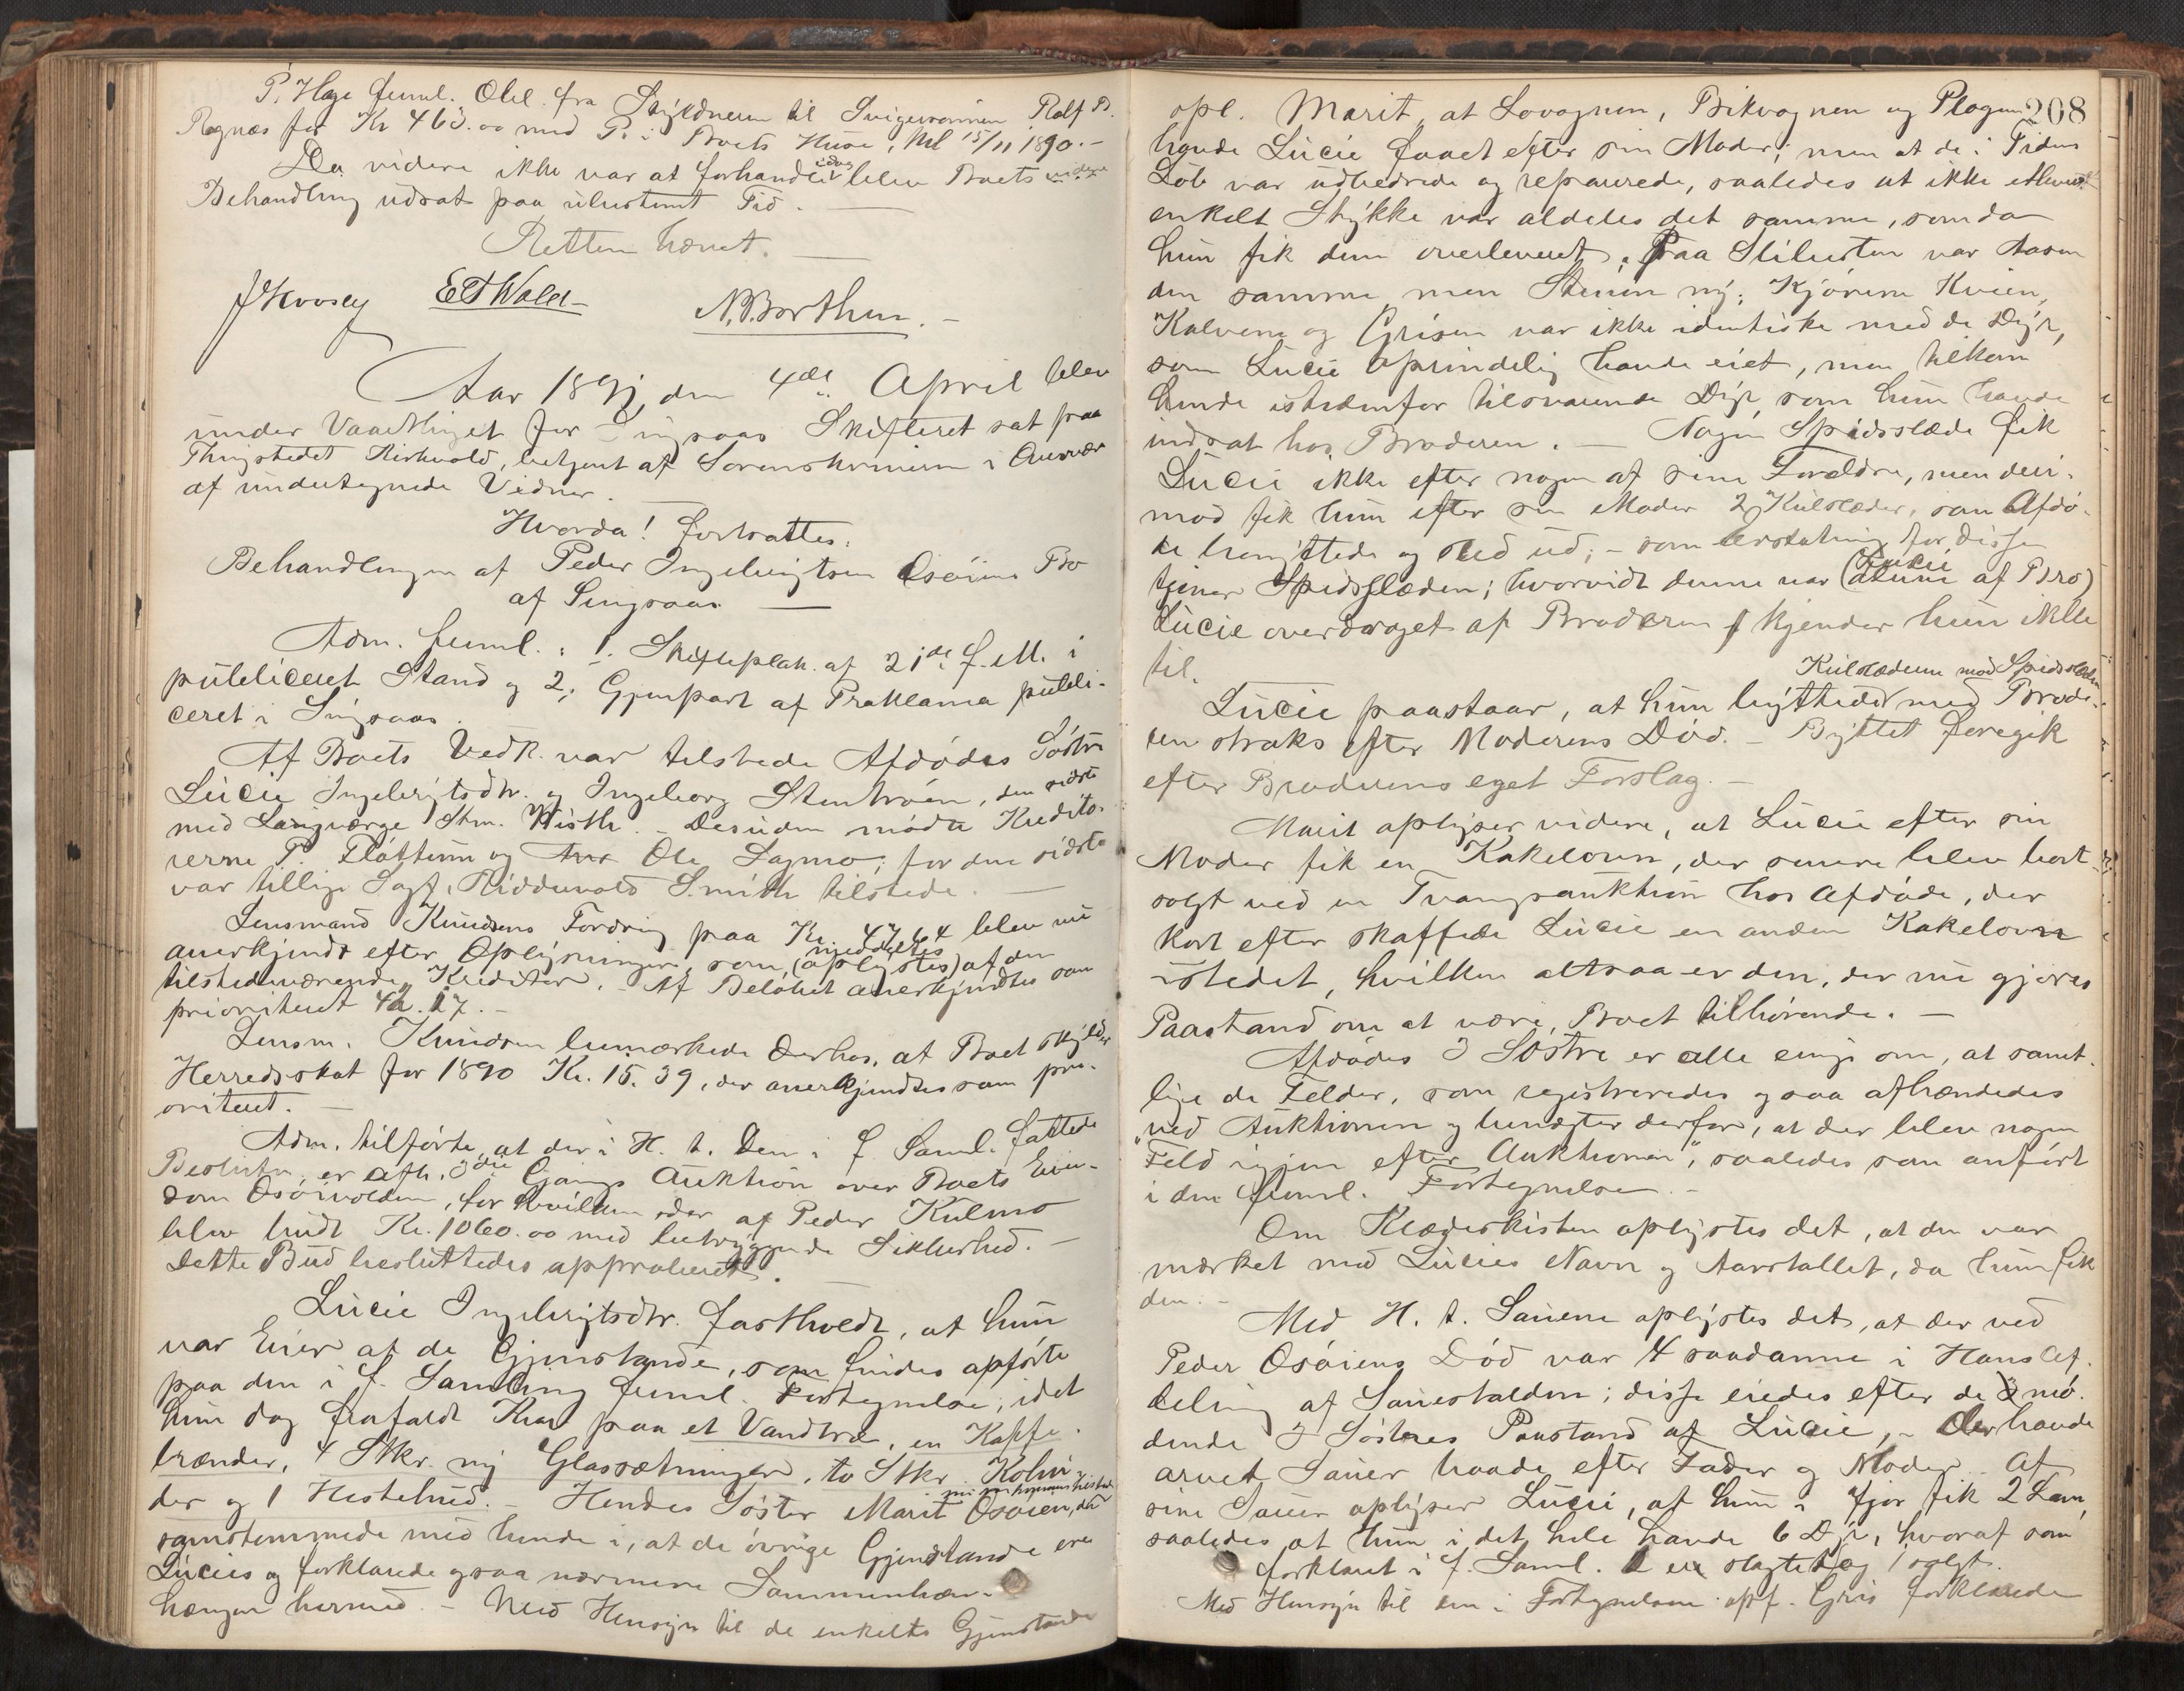 P. Hage feml. Obl. fra Skyldneren til Svigersønnen Rolf P.
Rognæs for Kr 463.00 med P. i Boets Huse, tlæst 15/11 1890.-
Da videre ikke var at forhandle idag blev Boets videre
Behandling udsat paa ubestemt Tid.
Retten hævet.
JKoosey ETWold N.P.Borthen.-
Aar 1891, den 4de April blev
under Vaarthinget for Singsaas Skifteret sat paa
Thingstedet Kirkvold, betjent af Sorenskriveren i Overvær
af undertegnede Vidner.
Hvorda! fortsattes:
Behandlingen af Peder Ingebrigtsen Osøiens Bo
af Singsaas
Adm. freml.: 1. Skifteplak. af 21de f. M. i
publiceret Stand og 2, Gjenpart af Proklama publi-
ceret i Singsaas.
Af Boets Vedk. var tilstede Afdødes Søstre
Lucie Ingebrigtsdtr. og Ingeborg Stentrøen, den sidste
med Laugværge Skm. Wisth. - Desuden mødte Kredito-
rerne P. Fløttum og Ole Lagmo; for den sidste
var tillige Sagf. Ridduvold Smith tilstede.
Lensmand Knudsens Fordring paa Kr. 47.64 blev nu
anerkjendt efter Oplysninger, som meddeltes (oplystes) af den
tilstedeværende Kreditor. - Af Beløbet anerkjendtes som
prioriteret 42.17.-
Lensm. Knudsen bemærkede derhos, at Boet skylder
Herredsskat for 1890 Kr. 15.39, der anerkjendtes som pri-
oriteret.
Adm. tilførte, at der i H. t. den i f. Saml. fattede
Beslutn. er afh. 3die Gangs Auktion over Boets Eien-
dom Osøivolden, for hvilken der af Peder Kulmo
blev budt Kr. 1060.00 med betryggende Sikkerhed. -
Dette Bud besluttedes approberet.
Lucie Ingebrigtsdtr. fastholdt, at hun
var Eier af de Gjenstande, som findes opførte
paa den i f. Samling freml. Fortegnelse; idet
hun dog frafaldt Krav paa et Vandtræ, en Kaffe-
brænder, 4 Stkr. ny Glassætninger, to Stkr. Kolvi-
der og 1 Hestehud. - Hendes Søster Marit Osøien, der nu var kommen tilstede
samstemmede med hende i, at de øvrige Gjenstande ere
Lucies og forklarede ogsaa nærmere Sammenhæn-
hængen hermed. - Med Hensyn til de enkelte Gjenstande
208
opl. Marit, at Lovognen, Bikvognen og Plogen
havde Lucie faaet efter sin Moder; men at de i Tidens
Løb var udbedrede og reparerede, saaledes at ikke ethvert
enkelt Stykke var aldeles det samme, som da
hun fik dem overleveret. Paa Slibesten var Aasen
den samme, men Stenen ny. Kjørene Kvien,
Kalvene og Grisen var ikke identiske med de Dyr,
som Lucie oprindelig havde eiet, men tilkom
hende istedenfor tilsvarende Dyr, som hun havde
indsat hos Broderen. - Nogen Spidsslæde fik
Lucie ikke efter nogen af sine Forældre, men deri-
mod fik hun efter sin Moder 2 Kulslæder, som Afdø-
de benyttede og sled ud; - som Erstatning for disse
tjener Spidsslæden; hvorvidt denne var (denne af Bro) Lucie
Lucie overdraget af Broderen kjender hun ikke
til.
Lucie paastaar, at hun byttede Kulslæderne mod Spidsslæden med Brode-
ren straks efter Moderens Død. - Byttet foregik
efter Broderens eget Forslag. -
Marit oplyser videre, at Lucie efter sin
Moder fik en Kakelovn, der senere blev bort-
solgt ved en Tvangsauktion hos Afdøde, der
kort efter skaffede Lucie en anden Kakelovn
istedet, hvilken altsaa er den, der nu gjøres
Paastand om at være Boet tilhørende. -
Afdødes 3 Søstre er alle enige om, at samt-
lige de Felder, som registreredes ogsaa afhændedes
ved Auktionen og benægter derfor, at der blev nogen
"Feld igjen efter Auktionen", saaledes som anført
i den freml. Fortegnelse.-
Om Klædeskisten oplystes det, at den var
mærket med Lucies Navn og Aarstallet, da hun fik
den.-
Med H. t. Sauene oplystes det, at der ved
Peder Osøiens Død var 4 saadanne i Hans Af-
deling af Sauestalden; disse eiedes efter de 3 mø-
dende 3 Søstres Paastand af Lucie, - der havde
arvet Sauer baade efter Fader og Moder. Af
sine Sauer oplyser Lucie, at hun i Fjor fik 2 Lam,
saaledes at hun i det hele havde 6 Dyr, hvoraf som
forklaret i f. Saml. 1 er slagtet og 1 solgt.
Med Hensyn til den i Fortegnelsen opf. Gris forklarede